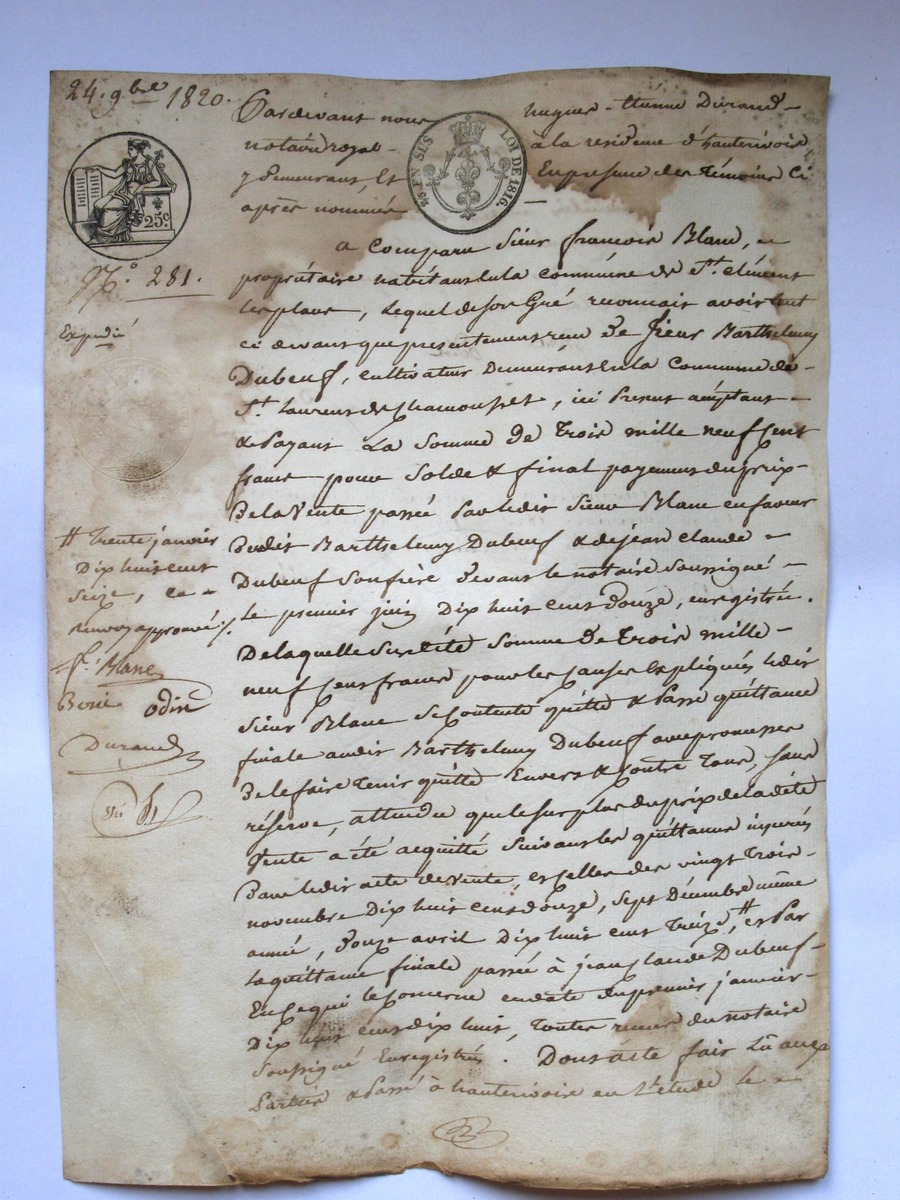 24. 9bre 1820.
Pardevant nous hugues-étienne Durand-
notaire royal- à la residence d'hauterivoire
y demeurant, Et En presence des témoins Ci
après nommés
EN SUS LOI DE 1816.
25c.
N.o 281.
Expedié
a Comparu Sieur françois Blanc, -
propriétaire habitant en la commune de St. clément
les places, lequel de son Gré reconnais avoir tant
ci devant que presentement reçu de Sieur Barthelemy
Dubeuf, cultivateur Demeurant en la Commune de-
St. laurent de Chamousset, ici Present acceptant-
& Payant La Somme De Trois mille neuf cent
francs pour Solde & final payement du prix-
De la Vente passée Par ledit Sieur Blanc en faveur
Dudit Barthelemy Dubeuf & de jean claude-
Dubeuf Son frère devant le notaire Soussigné-
le premier juin Dix huit cent douze, enregistrée.
De laquelle Susdite Somme de Trois mille-
neuf Cent francs pour les Causes Expliquées ledit
Sieur Blanc Se Contente quitte & Passe quittance
finale audit Barthelemy Dubeuf avec promesse
De le faire Tenir quitte Envers & Contre Tous, Sans
réserve, attendu que le Surplus du prix de la dite
Vente a été acquitté Suivant les quittances inserées
Dans ledit acte de Vente, et Celles des vingt Trois-
novembre Dix huit cent douze, Sept Décembre même
année, douze avril Dix huit cent Treize, # et Par
la quittance finale passée à jean Claude Dubeuf-
En Ce qui le Concerne en date du premier janvier-
Dix huit cent dix huit, Toutes reçues du notaire
Soussigné Enregistrées. Dont acte fait Lû aux
Parties & Passé à hauterivoire en L'étude le -
# Trente janvier
Dix huit cent
Seize, ce -
renvoy approuvé ./.
fs. Blanc
Boni odin
Durand